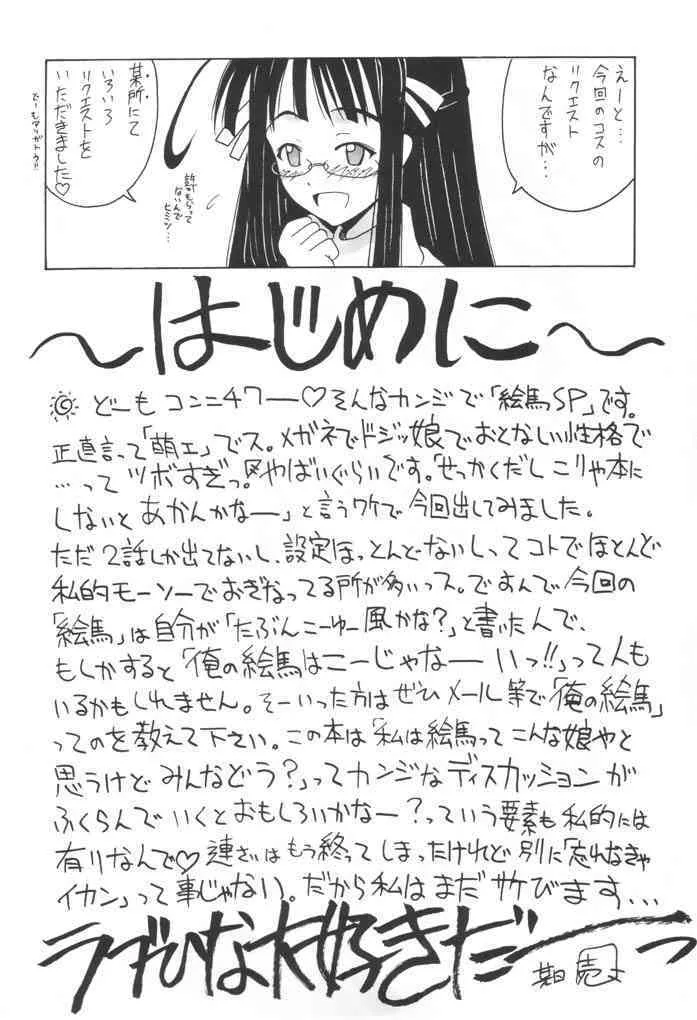 えーと…
今回のコスの
リクエスト
なんですが…
許可もらって
ないんで
ヒミツ…
某所にて
いろいろ
リクエストを
いただきました♡
どーもアリガトウ!!
〜はじめに〜
どーもコンニチワー♡そんなカンジで「絵馬SP」です。
正直言って「萌エ」でス。メガネでドジッ娘でおとなしい性格で
…ってツボすぎっ。やばいぐらいです。「せっかくだしこりゃ本に
しないとあかんかなー」と言うワケで今回出してみました。
ただ2話しか出てないし、設定ほっとんどないしってコトでほとんど
私的モーソーでおぎなってる所が多いっス。ですんで今回の
「絵馬」は自分が「たぶんこーゆー風かな?」と書いたんで、
もしかすると「俺の絵馬はこーじゃなーいっ!!」って人も
いるかもしれません。そーいった方はぜひメール等で「俺の絵馬」
ってのを教えて下さい。この本は「私は絵馬ってこんな娘やと
思うけどみんなどう?」ってカンジなディスカッションが
ふくらんでいくとおもしろいかなー?っていう要素も私的には
有りなんで♡連さいはもう終ってしまったけれど別に「忘れなきゃ
イカン」って事じゃない。だから私はまだサケびます…
ラブひな大好きだーっ